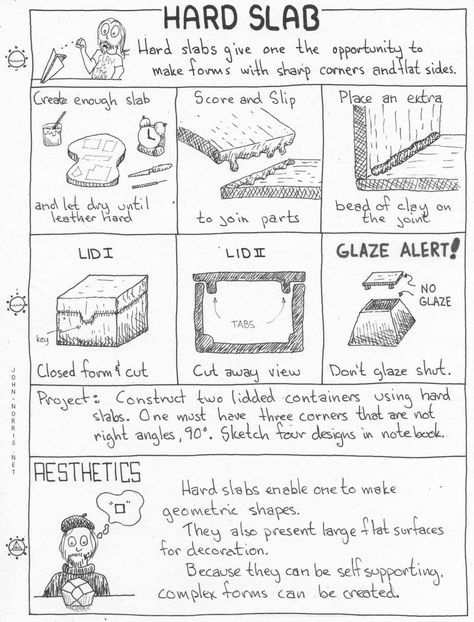 HARD SLAB
Hard slabs give one the opportunity to
make forms with sharp corners and flat sides.
Create enough slab
and let dry until
leather hard
Score and Slip
to join parts
Place an extra
bead of clay on
the joint
LID I
key
Closed form & cut
LID II
TABS
Cut away view
GLAZE ALERT!
NO
GLAZE
Don't glaze shut.
Project: Construct two lidded containers using hard
slabs. One must have three corners that are not
right angles, 90°. Sketch four designs in notebook.
JOHN-NORRIS.NET
AESTHETICS
"□"
Hard slabs enable one to make
geometric shapes.
They also present large flat surfaces
for decoration.
Because they can be self supporting,
complex forms can be created.